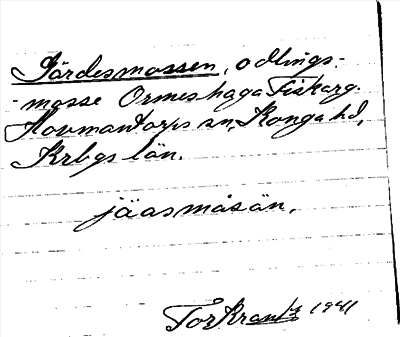 Gärdesmossen, odlings-
-mosse Ormeshaga Fiskarg.
Hovmantorps sn, Konga hd,
Krbgs län.
jäasmåsän.
Tor Krantz 1941